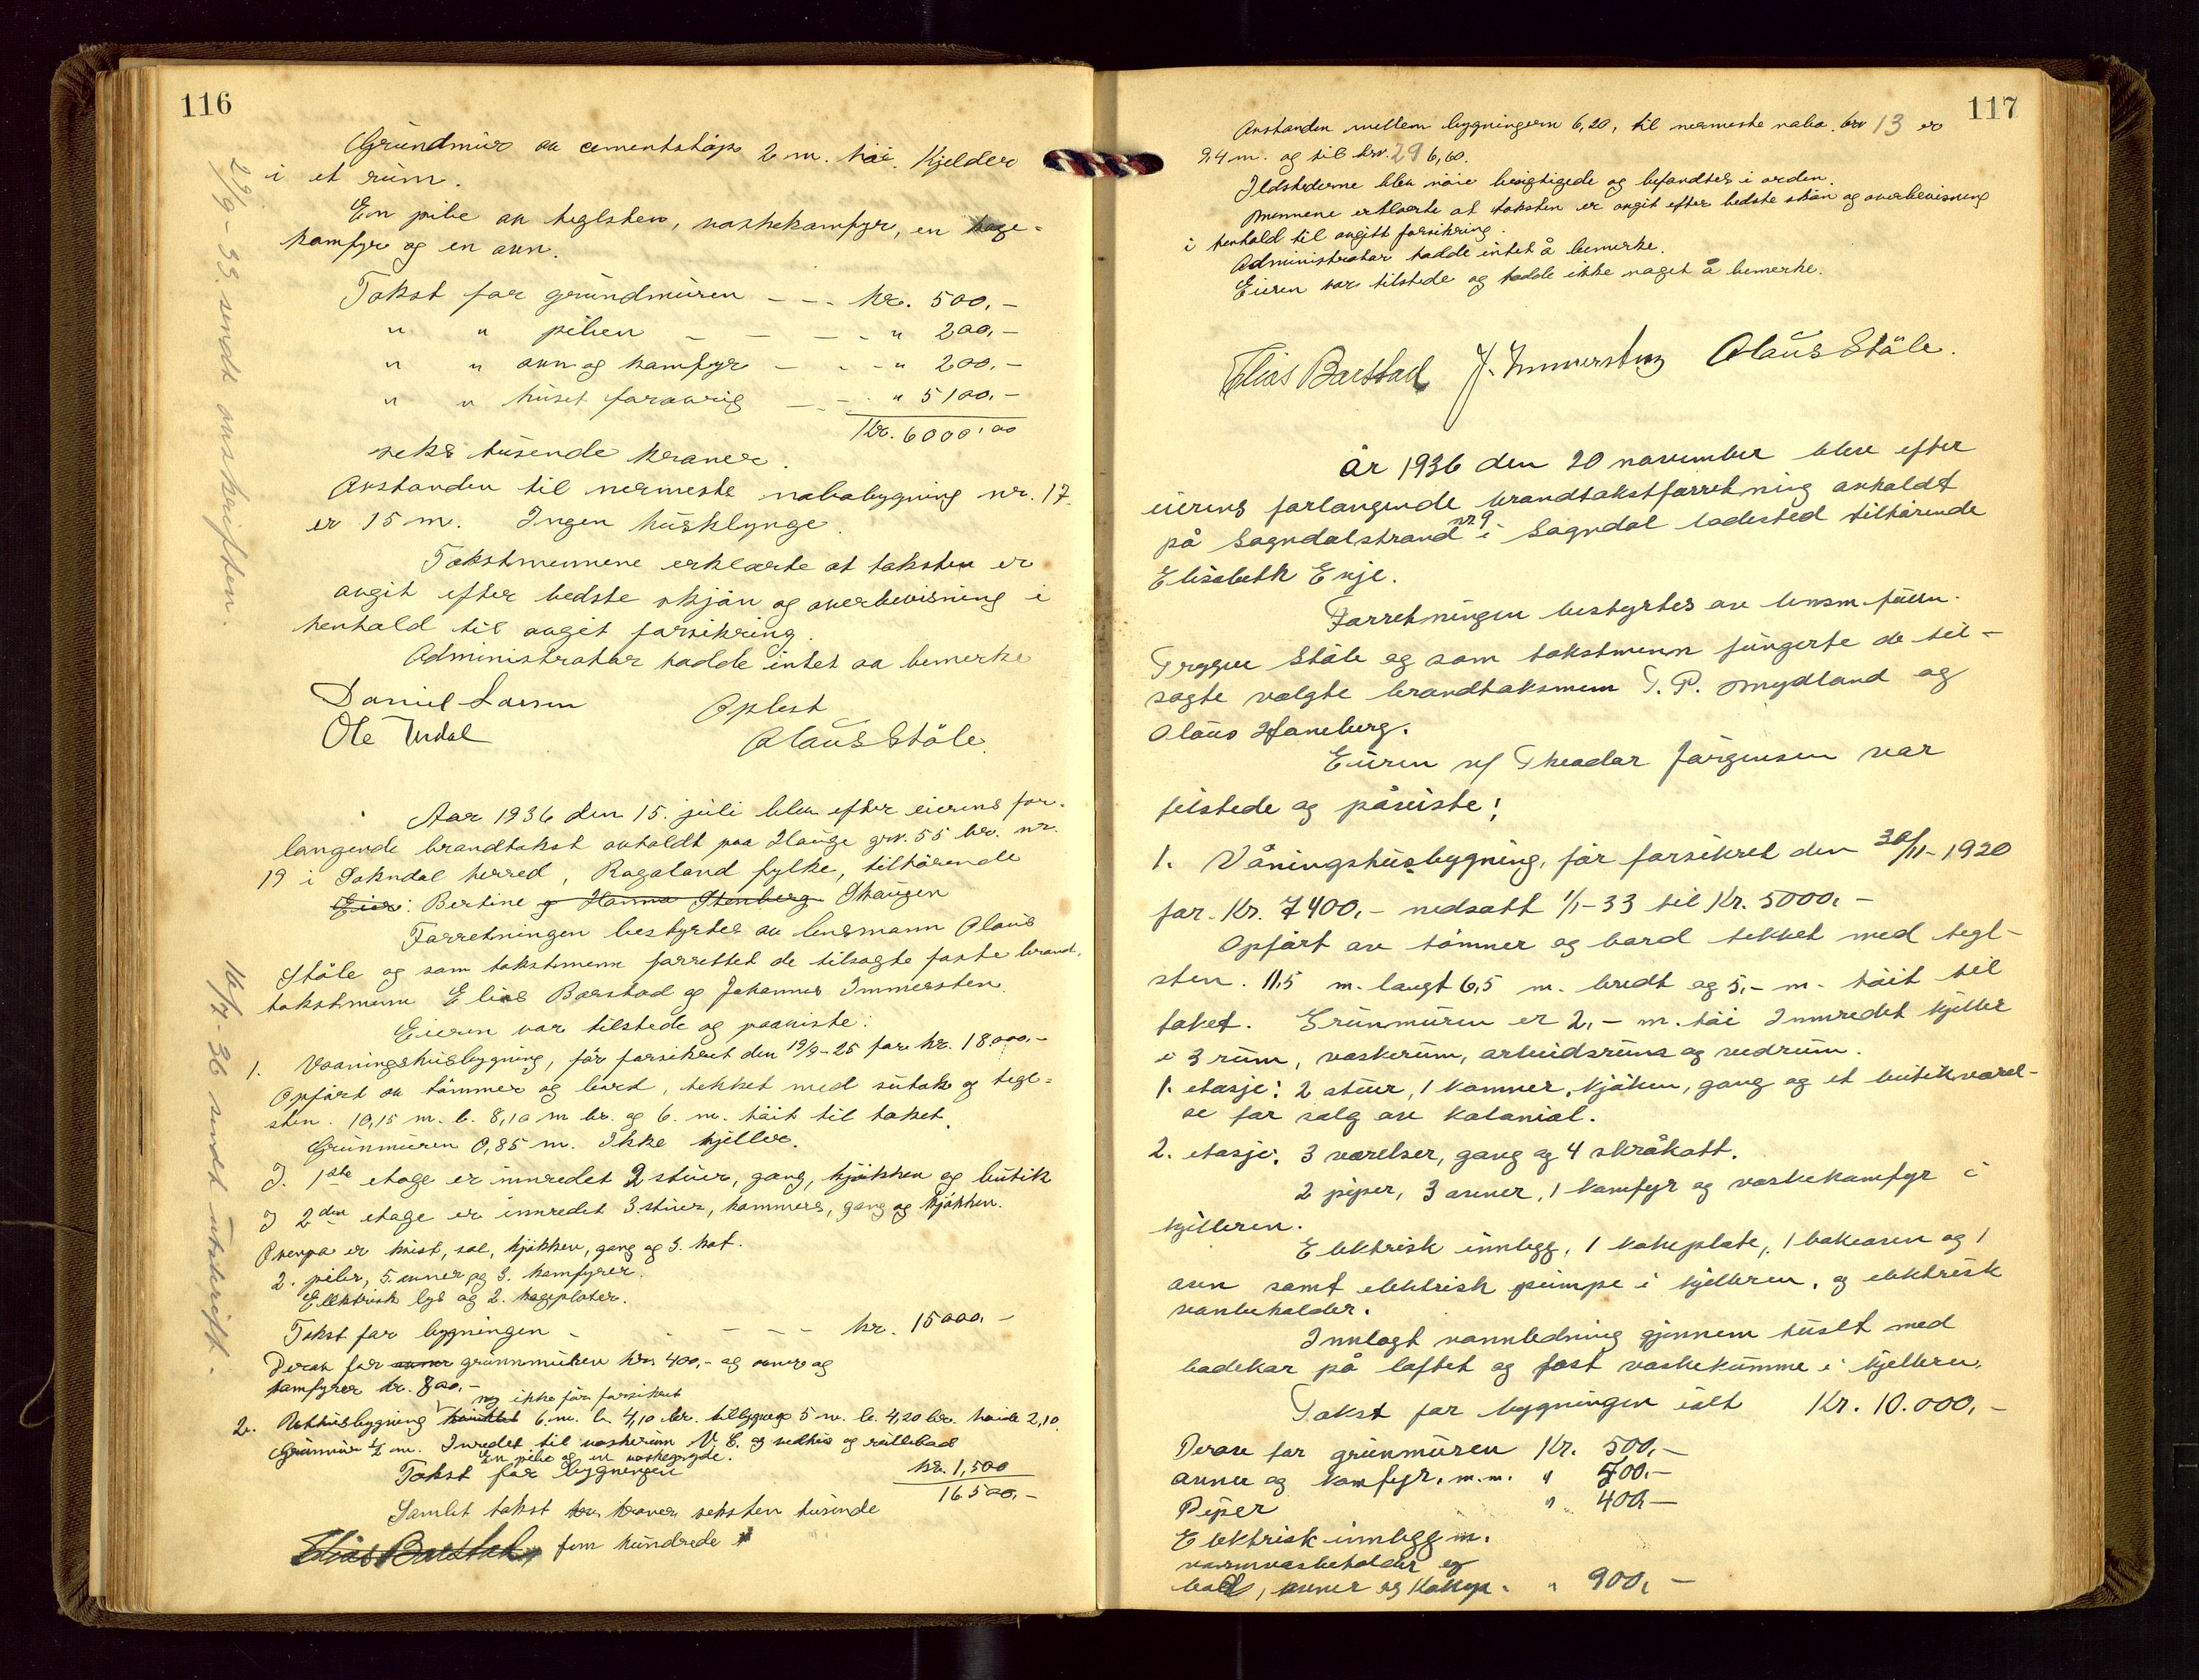 116
Grundmur av cementstøp 2 m. høi. Kjelder
i et rum.
En pibe av teglsten, vaskekamfyr, en
kamfyr og en ovn.
Takst for grundmuren - - - kr. 500,-
" " piben - - - - " 200,-
" " ovn og kamfyr - - - " 200,-
" " huset forøvrig - - - " 5100,-
Kr. 6000,00
seks tusende kroner.
Avstanden til nermeste nabobygning nr. 17
er 15 m. Ingen husklynge.
Takstmennene erklærte at taksten er
avgit efter bedste skjøn og overbevisning i
henhold til avgit forsikring.
Administrator hadde intet aa bemerke
Daniel Larsen Oplest
Ole Urdal Olaus Støle.
29/9-33. sendt avskriften.
Aar 1936 den 15. juli blev efter eierens for-
langende brandtakst avholdt paa Hauge grv. 55 br. nr.
19 i Sokndal herred, Rogaland fylke, tilhørende
Eier: Bertine g Hanna Stenberg Skaugen
Forretningen bestyrtes av lensmann Olaus
Støle og som takstmenn forrettet de tilsagte faste brand-
takstmenn Elias Barstad og Johannes Immersten.
Eieren var tilstede og paaviste:
1. Vaaningshusbygning, før forsikret den 19/9-25 for kr. 18000,-
Opført av tømmer og bord, tekket med sutak og tegl-
sten. 10,15 m. l. 8,10 m br. og 6. m. høit til taket.
Grunmuren 0,85 m. Ikke kjeller.
I. 1ste etage er innredet 2 stuer, gang, kjøkken og butik
I 2den etage er innredet 3. stuer, kammers, gang og kjøkken.
Ovenpa er kvist, sal, kjøkken, gang og 3. kot.
2. piber, 5. ovner og 3. kamfyrer.
Elektrisk lys og 2. kogeplater.
Takst for bygningen - - - - - kr. 15000,-
Derav for ovner grunnmuren kr. 400,- og ovner og
kamfyrer kr. 800,-
ny ikke før forsikret
2. Uthusbygning 6 m. l. 4,10 br. tilbygned 5 m. l. 4,20 br. høide 2,10.
Grunmur 1/2 m. Inredet til vaskerum V. C. og vedhus og rullebod
En pibe og en vaskegryde.
Takst for bygningen kr. 1,500
16500,-
Samlet takst kr. kroner seksten tusinde
Elias Barstad fem hundrede
16/7-36 sendt utskrift.
117
Avstanden mellem bygningern 6,20, til nermeste nabo. brv 13 er
9,4 m. og til brv. 29 6,60.
Ildstederne blev nøie besigtigede og befandtes i orden.
Mennene erklærte at taksten er avgit efter bedste skøn og overbevisning
i henhold til avgitt forsikring.
Administrator hadde intet å bemerke.
Eieren var tilstede og hadde ikke noget å bemerke.
Elias Barstad J. Immersten Olaus Støle.
År 1936 den 20 november blev efter
eierens forlangende brandtakstforretning avholdt
på Sogndalstrand nr 9 i Sogndal ladested tilhørende
Elisabeth Evje.
Forretningen bestyrtes av lensm. fullm.
Trygve Støle og som takstmenn fungerte de til-
sagte valgte brandtaksmenn T. P. Mydland og
Olaus Haneberg.
Eieren v/ Theodor Jørgensen var
tilstede og påviste:
1. Våningshusbygning, før forsikret den 30/11-1920
for Kr. 7400,- nedsatt 1/1-33 til Kr. 5000,-
Opført av tømmer og bord tekket med tegl-
sten. 11,5 m. langt 6,5 m. bredt og 5,- m. høit til
taket. Grunmuren er 2,- m. høi Innredet kjeller
i 3 rum, vaskerum, arbeidsrum og vedrum.
1. etasje: 2 stuer, 1 kammer, kjøken, gang og et butikværel-
se for salg av kolonial.
2. etasje: 3 værelser, gang og 4 skråkott.
2 piper, 3 ovner, 1 kamfyr og vaskekamfyr i
kjelleren.
Elektrisk innlegg, 1 kokeplate, 1 bakeovn og 1
ovn samt elektrisk pumpe i kjelleren, og elektrisk
vanbeholder.
Innlagt vannledning gjennem huset med
badekar på loftet og fast vaskekumme i kjelleren.
Takst for bygningen ialt Kr. 10.000,-
Derav for grunmuren Kr. 500,-
ovner og kamfyr, m.m. " 700,-
Piper " 400,-
Elektrisk innlegg m.
varmvasbeholder og
bad, ovner og kokepl. " 900,-